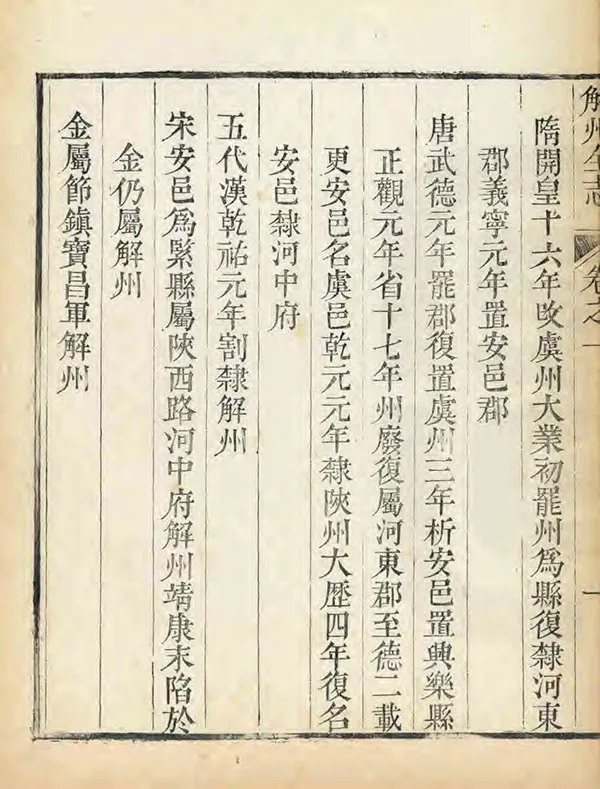 解州全志
卷之一
一
隋開皇十六年改虞州大業初罷州爲縣復隸河東
郡義寧元年置安邑郡
唐武德元年罷郡復置虞州三年析安邑置興樂縣
正觀元年省十七年州廢復屬河東郡至德二載
更安邑名虞邑乾元元年隸陝州大歷四年復名
安邑隸河中府
五代漢乾祐元年割隸解州
宋安邑爲緊縣屬陝西路河中府解州靖康末陷於
金仍屬解州
金屬節鎮寶昌軍解州